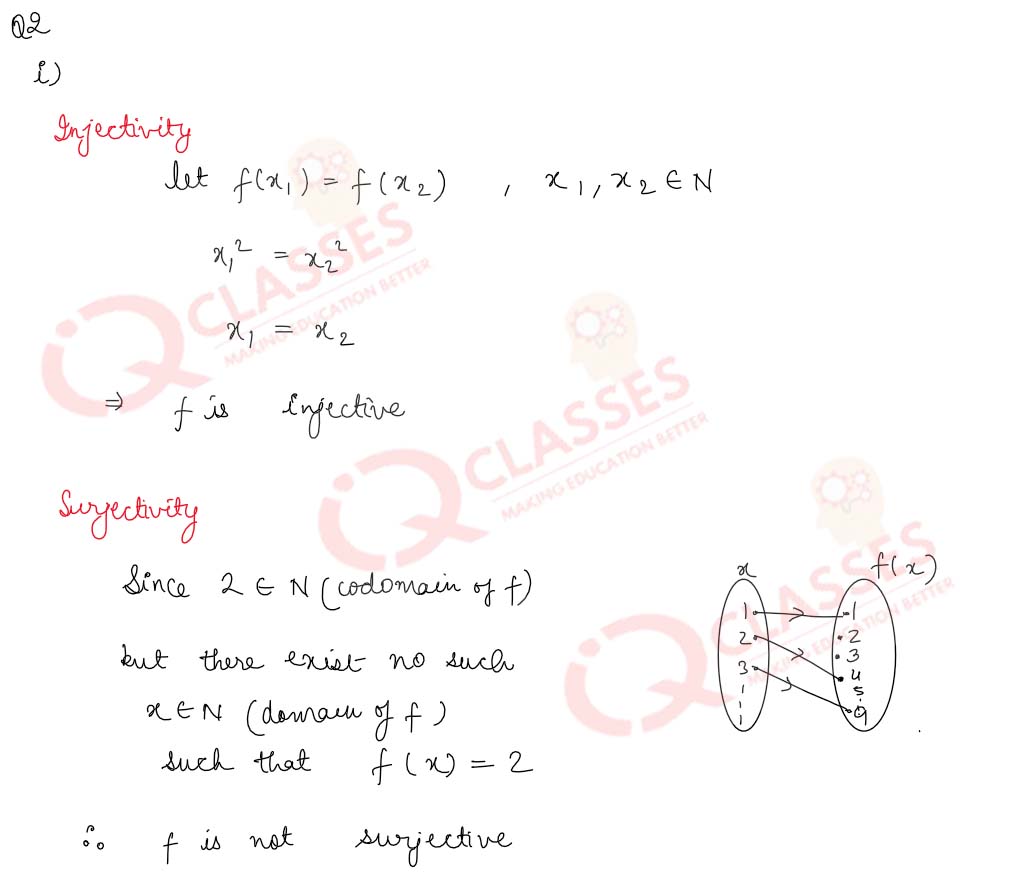 Q2
i)
Injectivity
let f(x₁) = f(x₂) , x₁, x₂ ∈ N
x₁² = x₂²
x₁ = x₂
⇒ f is injective
Surjectivity
Since 2 ∈ N (codomain of f)
but there exist no such
x ∈ N (domain of f)
such that f(x) = 2
∴ f is not surjective
x f(x)
1 1
2 2
3 3
4
5
9
IQ CLASSES
MAKING EDUCATION BETTER
IQ CLASSES
MAKING EDUCATION BETTER
IQ CLASSES
MAKING EDUCATION BETTER